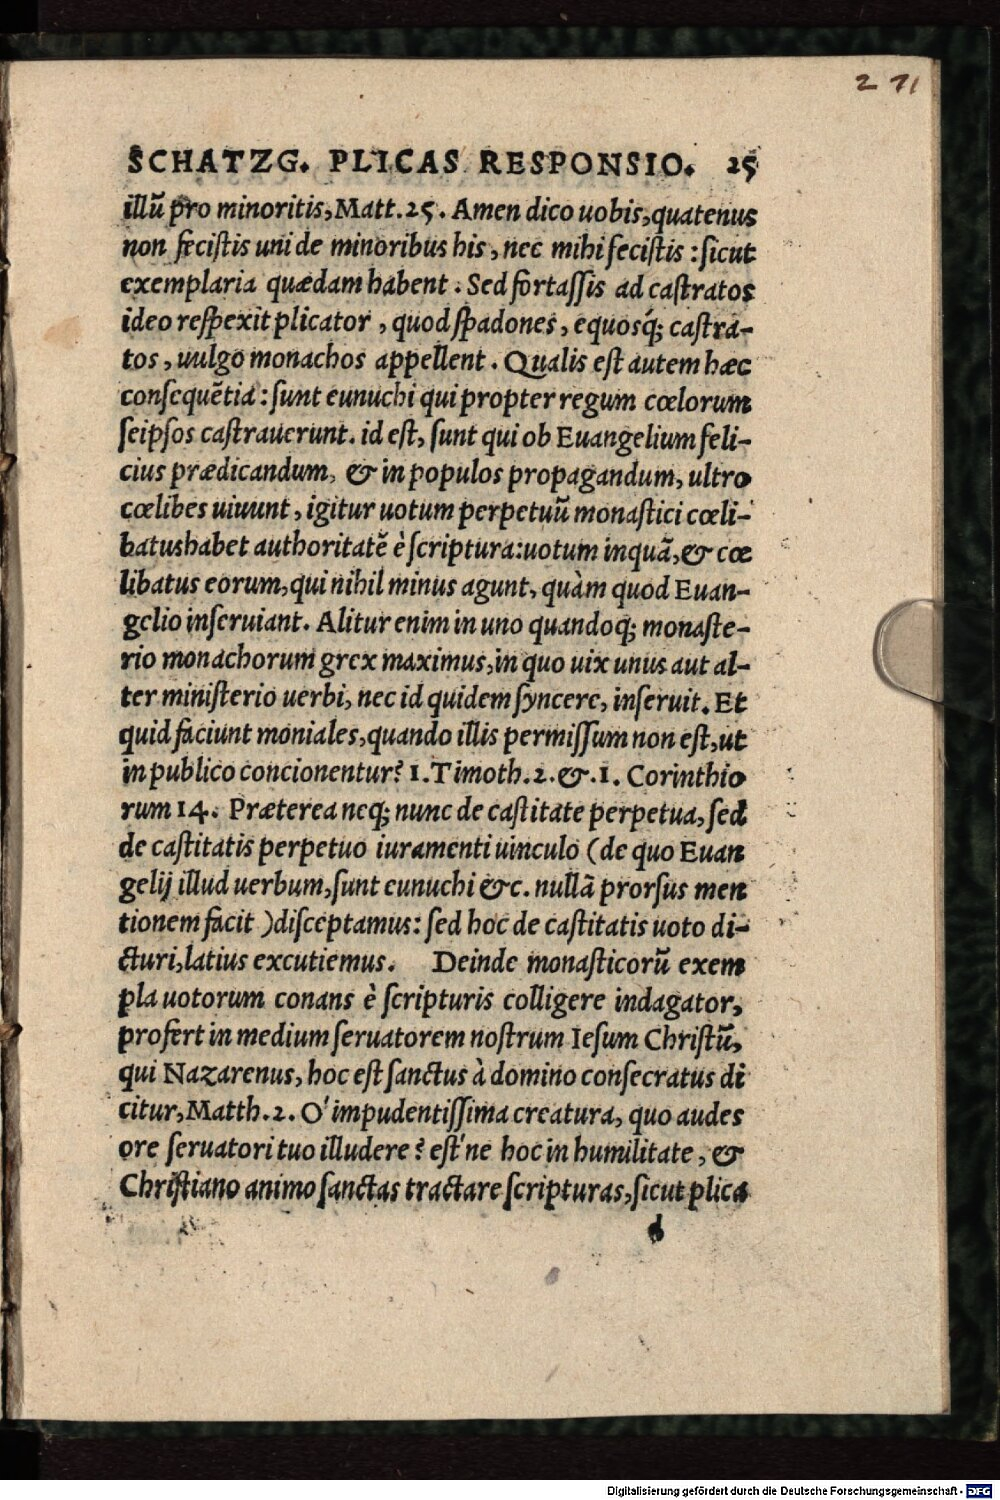 2 71
SCHATZG. PLICAS RESPONSIO. 25
illũ pro minoritis, Matt. 25. Amen dico uobis, quatenus
non feciſtis uni de minoribus his, nec mihi feciſtis: ſicut
exemplaria quædam habent. Sed fortaſſis ad caſtratos
ideo reſpexit plicator, quod ſpadones, equosq́; caſtra-
tos, uulgo monachos appellent. Qualis eſt autem hæc
conſequẽtia: ſunt eunuchi qui propter regum cœlorum
ſeipſos caſtrauerunt. id eſt, ſunt qui ob Euangelium feli-
cius prædicandum, & in populos propagandum, ultro
cœlibes uiuunt, igitur uotum perpetuũ monaſtici cœli-
batus habet authoritatẽ è ſcriptura: uotum inquã, & cœ
libatus eorum, qui nihil minus agunt, quàm quod Euan-
gelio inſeruiant. Alitur enim in uno quandoq; monaſte-
rio monachorum grex maximus, in quo uix unus aut al-
ter miniſterio uerbi, nec id quidem ſyncere, inſeruit. Et
quid faciunt moniales, quando illis permiſſum non eſt, ut
in publico concionentur? 1. Timoth. 2. &. 1. Corinthio
rum 14. Præterea neq; nunc de caſtitate perpetua, ſed
de caſtitatis perpetuo iuramenti uinculo (de quo Euan
gelij illud uerbum, ſunt eunuchi &c. nullã prorſus men
tionem facit) diſceptamus: ſed hoc de caſtitatis uoto di-
cturi, latius excutiemus. Deinde monaſticorũ exem
pla uotorum conans è ſcripturis colligere indagator,
profert in medium ſeruatorem noſtrum Ieſum Chriſtũ,
qui Nazarenus, hoc eſt ſanctus à domino conſecratus di
citur, Matth. 2. O' impudentiſſima creatura, quo audes
ore ſeruatori tuo illudere? eſt'ne hoc in humilitate, &
Chriſtiano animo ſanctas tractare ſcripturas, ſicut plica
d
Digitalisierung gefördert durch die Deutsche Forschungsgemeinschaft - DFG